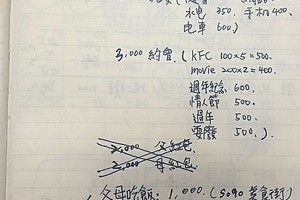 水电 350. 手机 400.
电車 600.)
3,000 約會 ( KFC 100×5 = 500.
movie 200×2 = 400.
週年紀念 600.
情人節 500.
過年 500.
耍廢 500.)
2,000 父紅包.
2,000 母紅包.
父母吃飯: 1,000. (5090 美食街)